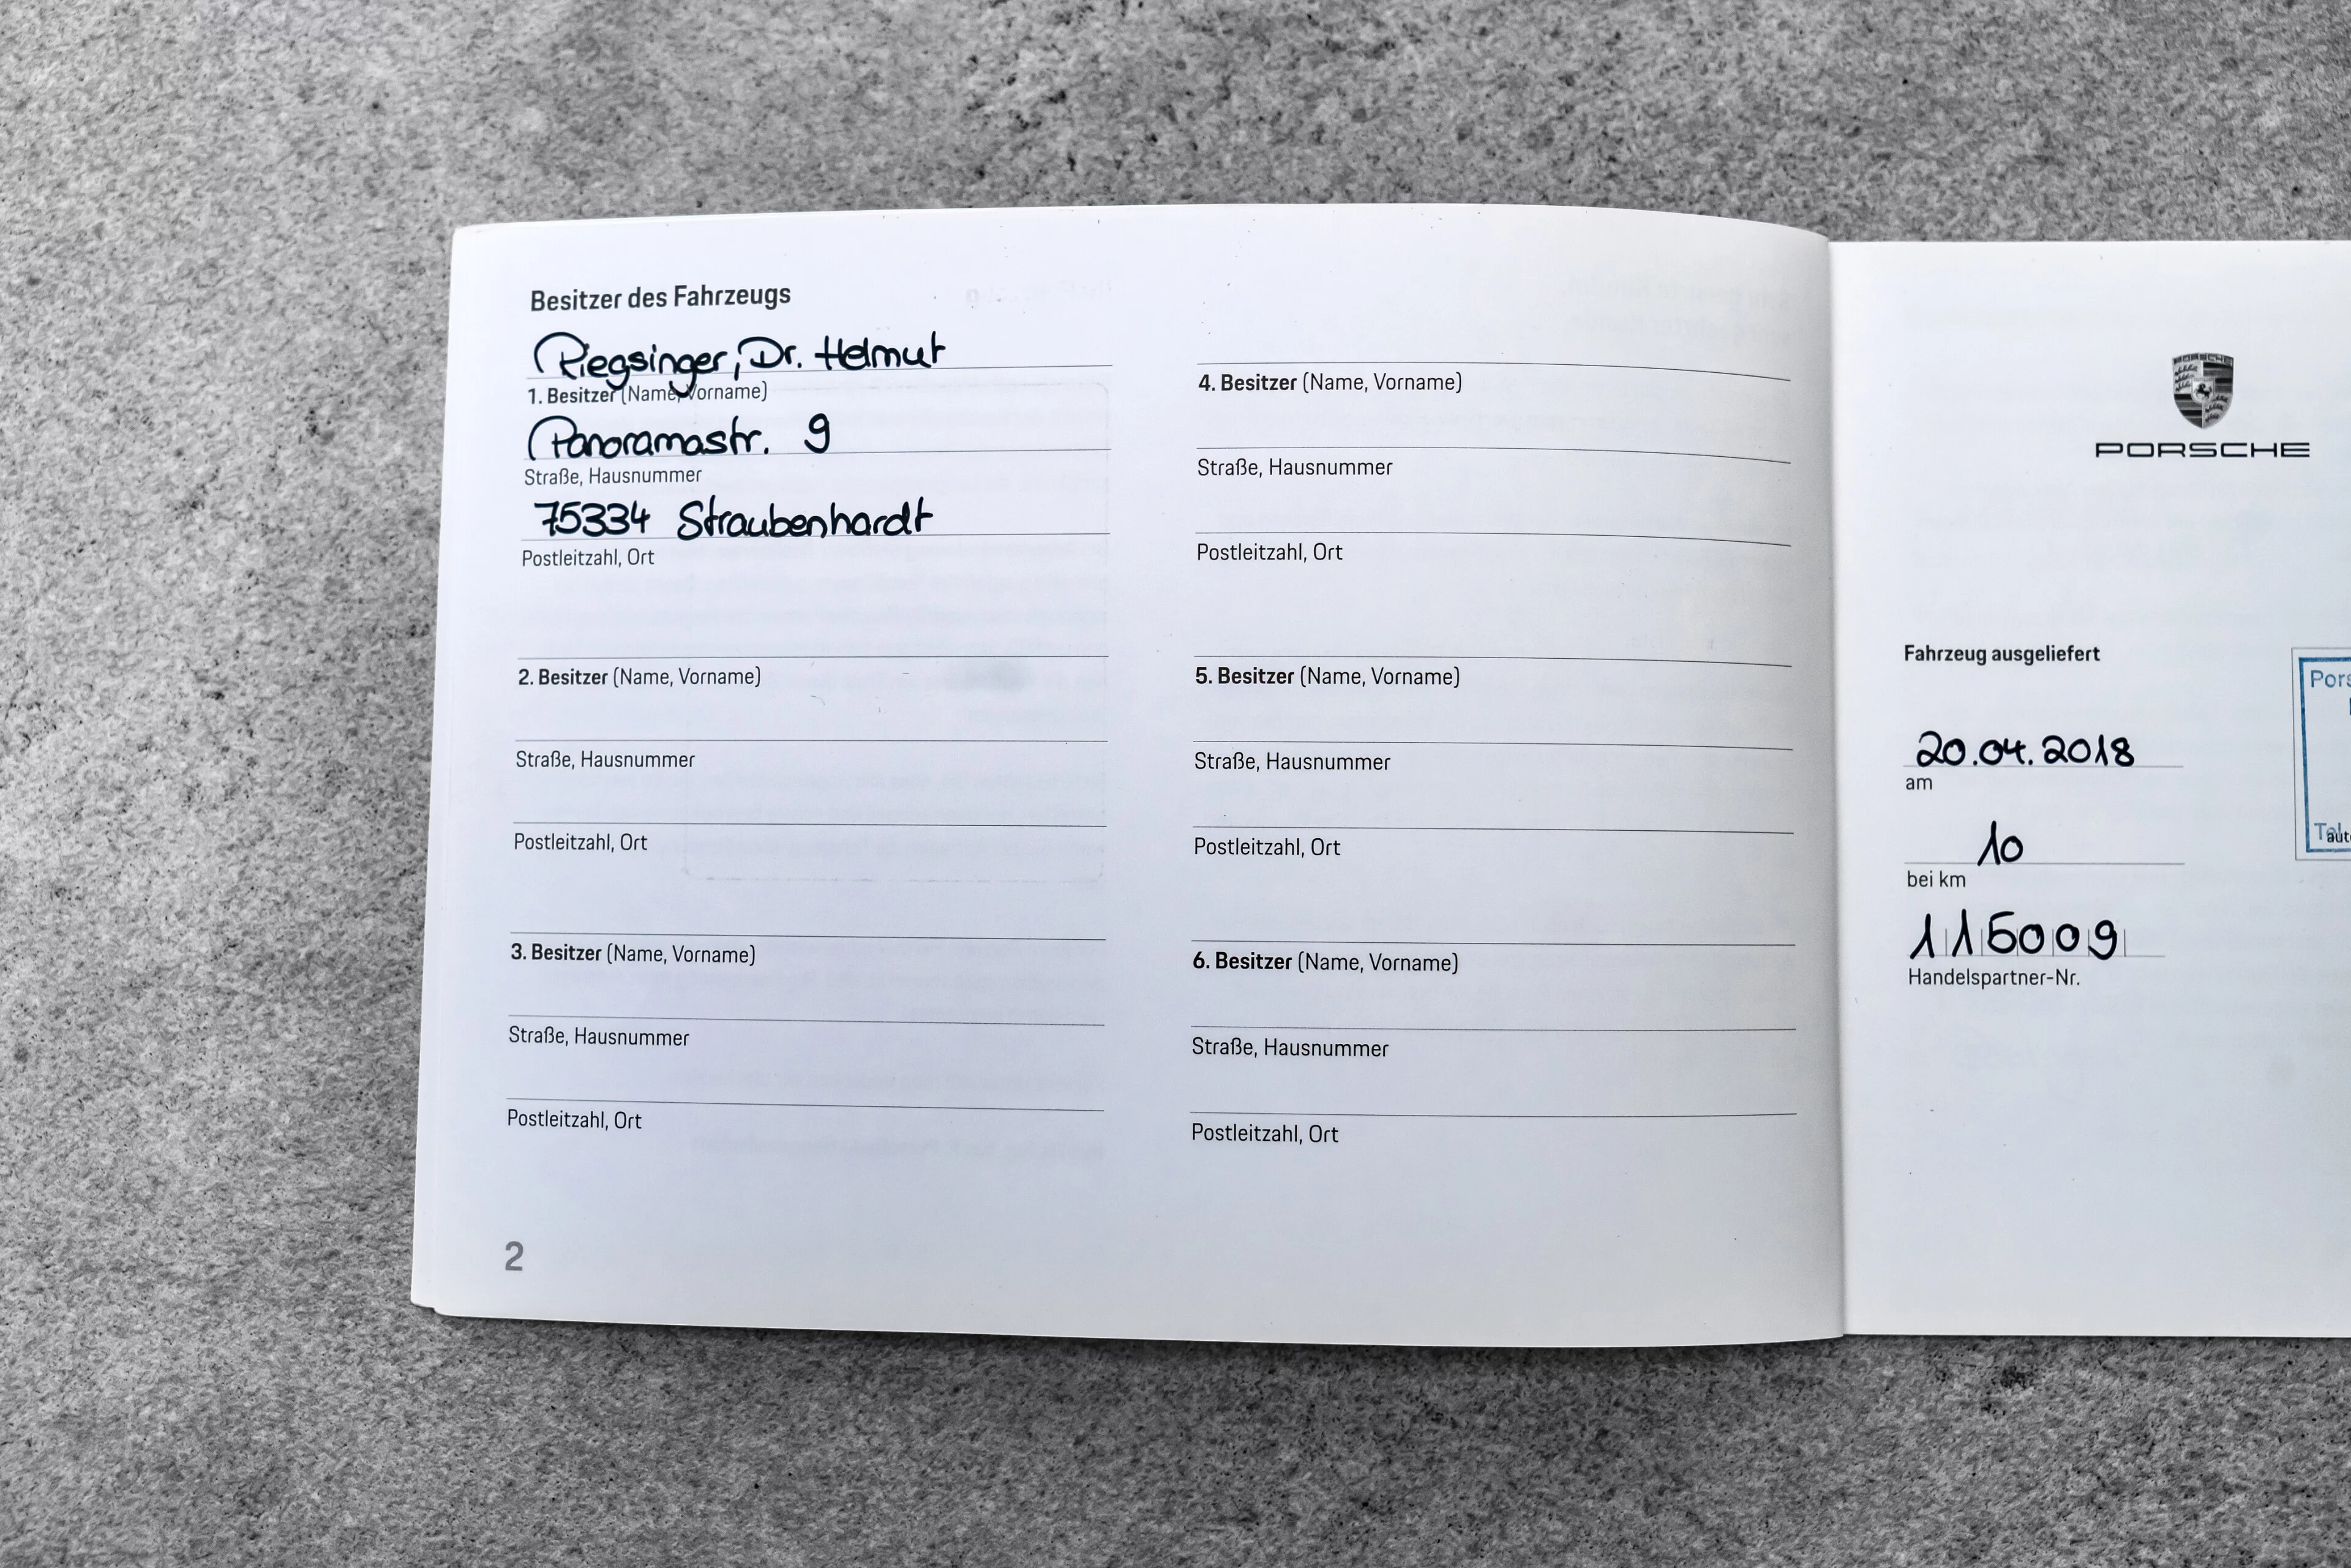 Besitzer des Fahrzeugs
Riegsinger, Dr. Helmut
1. Besitzer (Name, Vorname)
Panoramastr. 9
Straße, Hausnummer
75334 Straubenhardt
Postleitzahl, Ort
2. Besitzer (Name, Vorname)
Straße, Hausnummer
Postleitzahl, Ort
3. Besitzer (Name, Vorname)
Straße, Hausnummer
Postleitzahl, Ort
2
4. Besitzer (Name, Vorname)
Straße, Hausnummer
Postleitzahl, Ort
5. Besitzer (Name, Vorname)
Straße, Hausnummer
Postleitzahl, Ort
6. Besitzer (Name, Vorname)
Straße, Hausnummer
Postleitzahl, Ort
PORSCHE
PORSCHE
Fahrzeug ausgeliefert
20.04.2018
am
10
bei km
115009
Handelspartner-Nr.
Pors
Tel